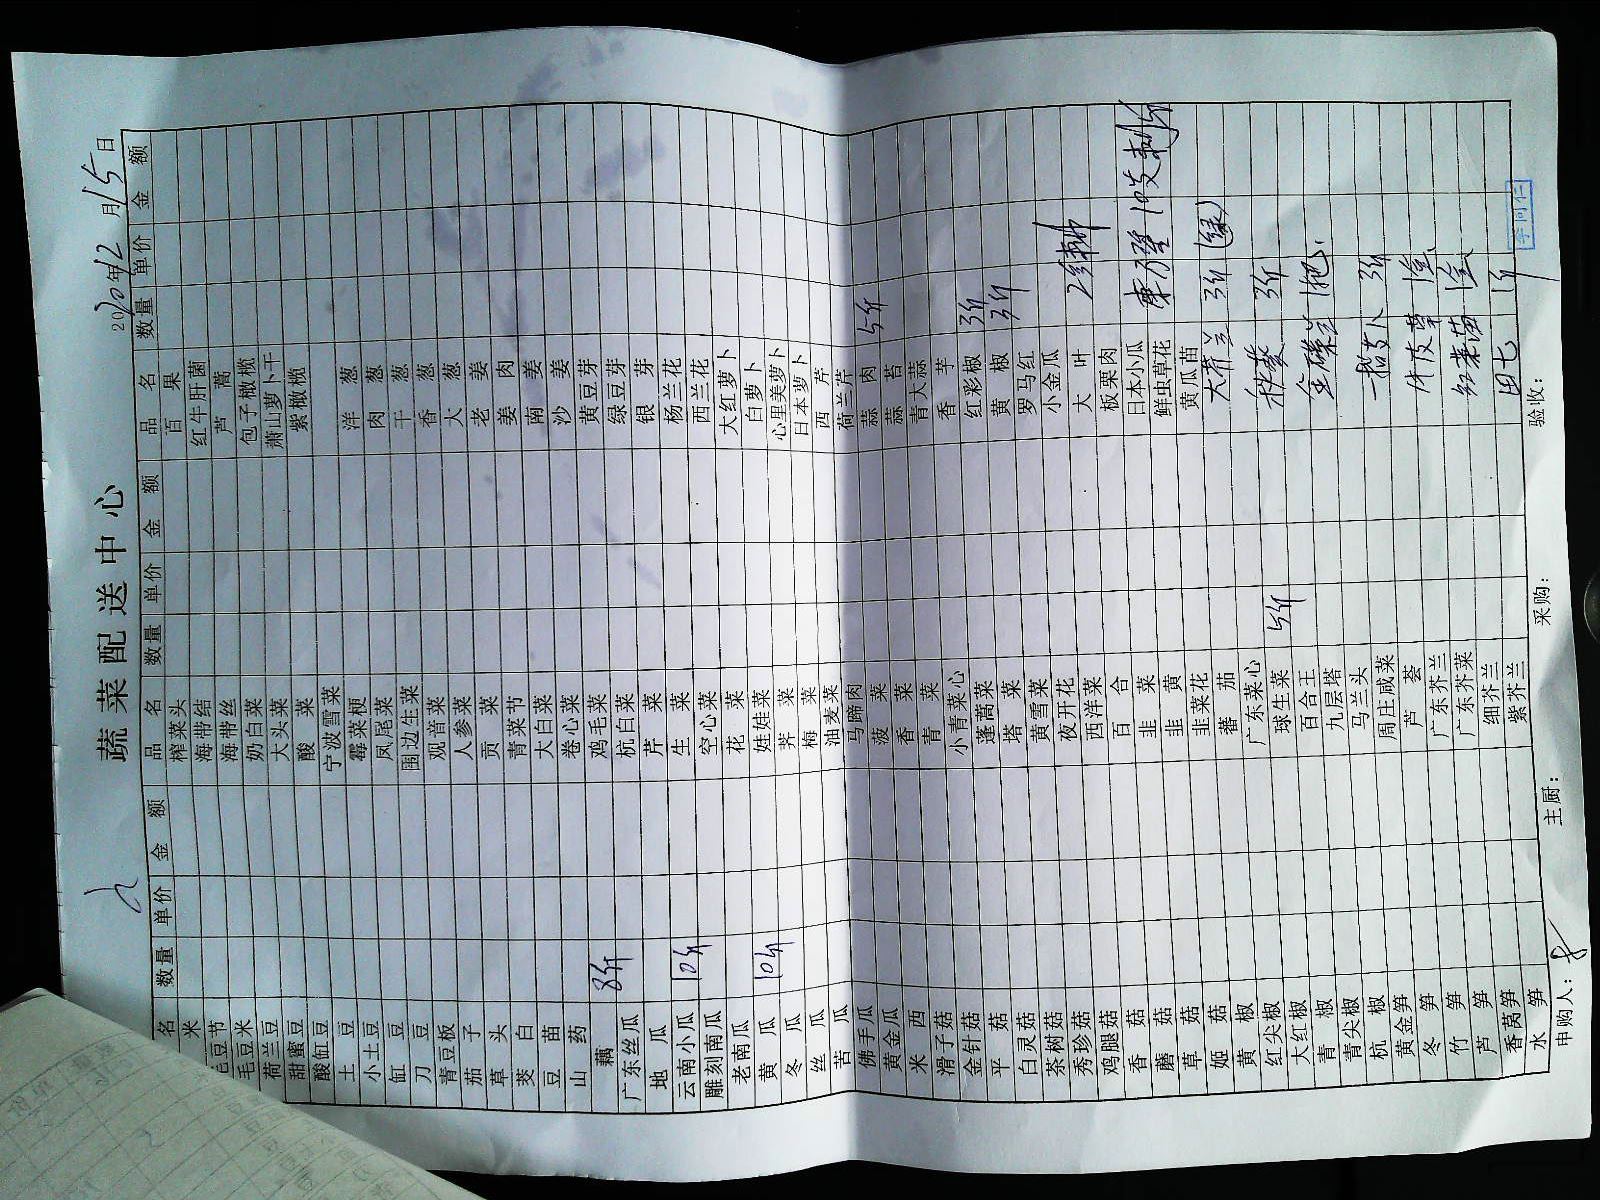 蔬菜配送中心
2020年12月15日
品名 数量 单价 金额 品名 数量 单价 金额 品名 数量 单价 金额
米 榨菜头 百果
毛豆节 海带结 红牛肝菌
毛豆米 海带丝 芦蒿
荷兰豆 奶白菜 包子橄榄
甜蜜豆 大头菜 萧山萝卜干
酸缸豆 酸菜 紫橄榄
土豆 宁波雪菜
小土豆 霉菜梗 洋葱
缸豆 凤尾菜 肉葱
刀豆 围边生菜 干葱
青豆板 观音菜 香葱
茄子 人参菜 大葱
草头 贡菜 老姜
茭白 青菜节 姜肉
豆苗 大白菜 南姜
山药 卷心菜 沙姜
藕 8斤 鸡毛菜 黄豆芽
广东丝瓜 杭白菜 绿豆芽
地瓜 芹菜 银芽
云南小瓜 10斤 生菜 杨兰花
雕刻南瓜 空心菜 西兰花
老南瓜 花菜 大红萝卜
黄瓜 10斤 娃娃菜 白萝卜
冬瓜 荠菜 心里美萝卜
丝瓜 梅菜 日本萝卜
苦瓜 油麦菜 西芹
佛手瓜 马蹄肉 荷兰芹
黄金瓜 菠菜 蒜肉 5斤
米西 香菜 蒜苔
滑子菇 青菜 青大蒜
金针菇 小青菜心 香芋
平菇 蓬蒿菜 红彩椒 3斤
白灵菇 塔菜 黄椒 3斤
茶树菇 黄雪菜 罗马红
秀珍菇 夜开花 小金瓜
鸡腿菇 西洋菜 大叶
香菇 百合 板栗肉
蘑菇 韭菜 日本小瓜
草菇 韭黄 鲜虫草花
姬菇 韭菜花 黄瓜苗
黄椒 蕃茄 大芥兰 3斤 (绿)
红尖椒 广东菜心
大红椒 球生菜 5斤 秋葵 3斤
青椒 百合王
青尖椒 九层塔
杭椒 马兰头
黄金笋 周庄咸菜 3斤
冬笋 芦荟
竹笋 广东芥兰
芦笋 广东芥菜
香莴笋 细芥兰
水笋 紫芥兰 田七 1斤
申购人： 主厨： 采购： 验收：